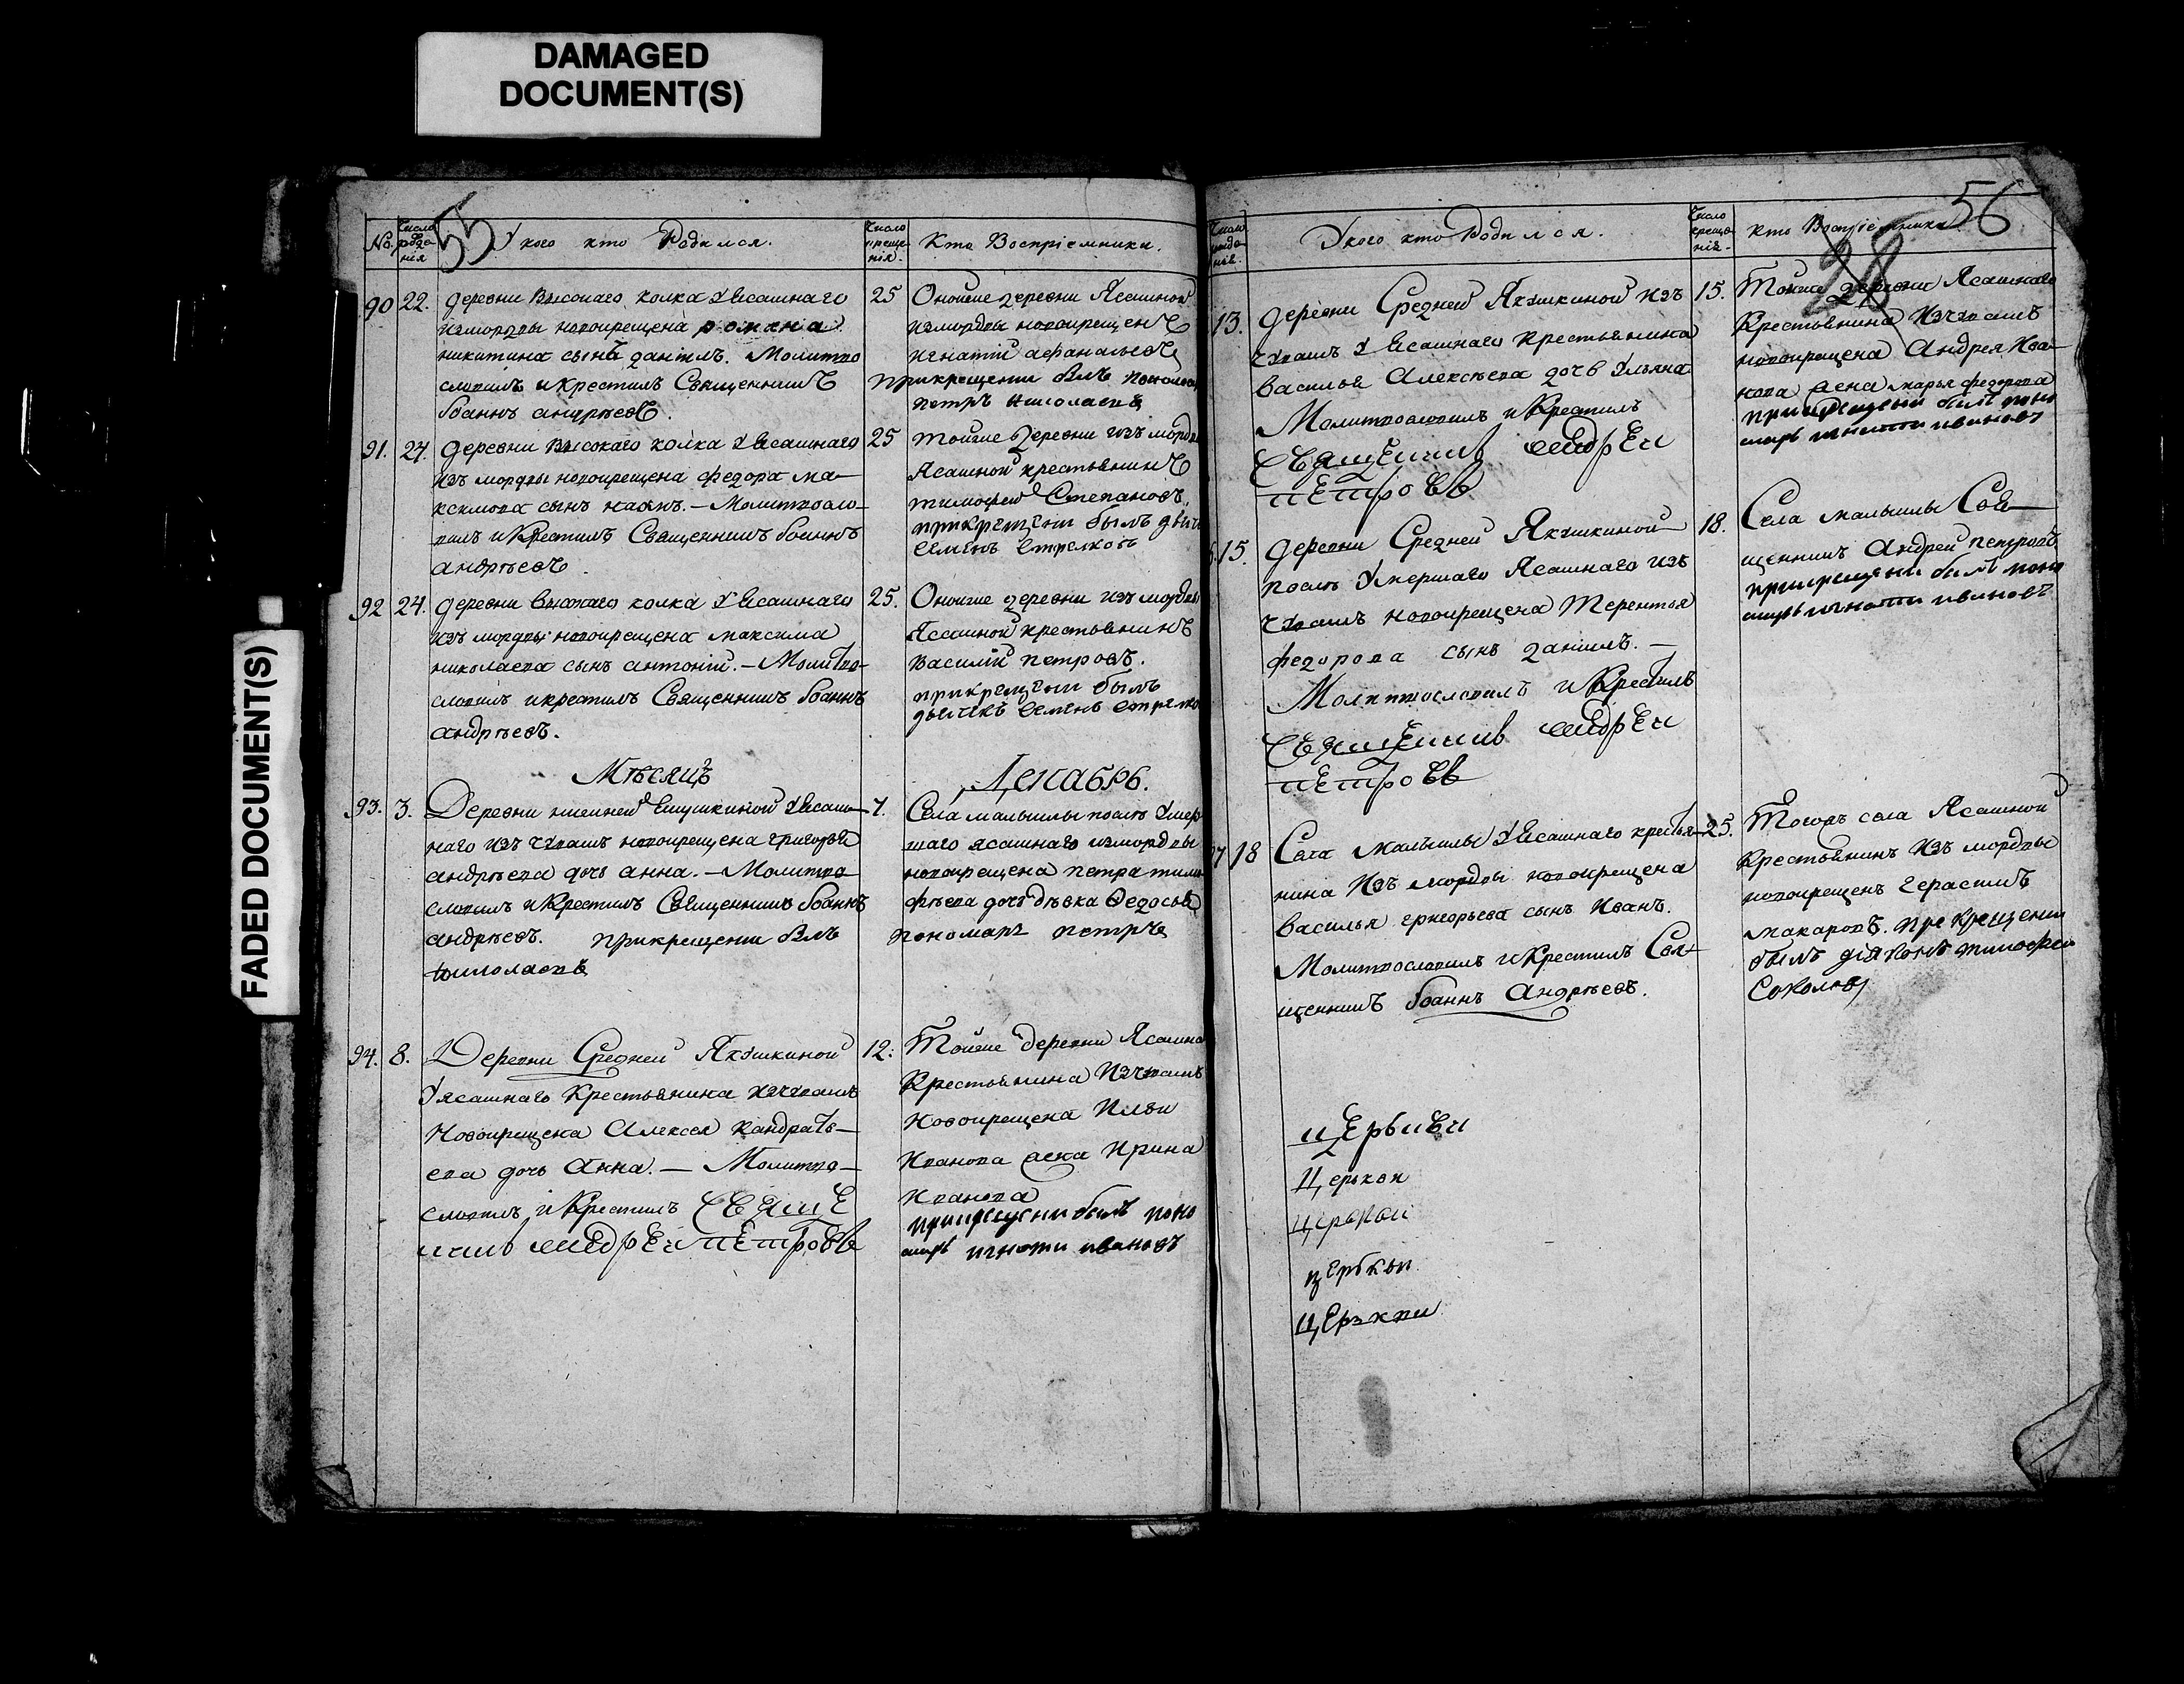 DAMAGED
DOCUMENT(S)
FADED DOCUMENT(S)
55
No.
Число рожде-
нія
У кого кто Родился.
Число
креще-
нія.
Кто Воспріемники.
90 22.
деревни высокаго колка у ясашнаго
измордвы новокрещена романа
никитина сынъ данiилъ. Молитво
словилъ и крестилъ Священникъ
Іоаннъ андрѣевъ.
25
Оноиже деревни Ясашной
измордвы новокрещенъ
игнатій афанасьевъ
прикрещени былъ пономарь
петръ николаевъ
91. 24.
деревни высокаго колка у ясашнаго
изъ мордвы новокрещена федора ма-
ксимова сынъ - Молитвосло-
вилъ и Крестилъ Священникъ Іоаннъ
андрѣевъ.
25
тоиже деревни изъ мордвы
Ясашной крестьянинъ
тимофей Степановъ.
прикрещени былъ дьяч
семенъ стрелковъ
92 24.
деревни высокаго колка у ясашнаго
изъ мордвы новокрещена максима
николаева сынъ антоній. - Молитво-
словилъ и крестилъ Священникъ Іоаннъ
андрѣевъ.
25.
Оноиже деревни изъ мордвы
Ясашной крестьянинъ
василій петровъ.
прикрещени былъ
дьячекъ семенъ стрелко
Мѣсяцъ Декабрь.
93. 3.
Деревни нижней Якушкиной у ясаш-
наго изъ чувашъ новокрещена григорья
андрѣева дочь анна. - Молитво
словилъ и Крестилъ Священникъ Іоаннъ
андрѣевъ. прикрещени былъ
николаевъ
7.
Села малыклы послѣ умер
шаго ясашнаго измордвы
новокрещена петра тимо
фѣева дочь дѣвка Ѳедосья
пономарь петръ
94. 8.
Деревни Средней Якушкиной
У ясашнаго Крестьянина изчувашъ
Новокрещена Алексея кандрать-
ева дочь Анна. - Молитво-
словилъ и Крестилъ СвЯщЕ
никъ андрЕи пЕтровъ
12.
Тойже деревни Ясашна
Крестьянина Изчувашъ
Новокрещена Ильи
Иванова жена Ирина
Иванова
прикрещени былъ поно
марь игнати ивановъ
56
28
Число
рожде-
нія.
У кого кто Родился.
Число
креще-
нія.
кто Воспріемники
13.
деревни Средней Якушкиной изъ
чувашъ У ясашнаго Крестьянина
василья Алексѣева дочь Ульяна
Молитвословилъ и Крестилъ
СвЯщЕникъ андрЕи
пЕтровъ
15.
Тойже деревни Ясашнаго
Крестьянина Изчувашъ
новокрещена Андрея Ива-
нова жена марья федорова
прикрещеньи былъ поно
марь игнати ивановъ
15.
деревни Средней Якушкиной
послѣ Умершаго Ясашнаго изъ
чувашъ новокрещена Терентья
федорова сынъ данiилъ. -
Молитвословилъ и Крестилъ
СвЯщЕникъ андрЕи
пЕтровъ
18.
Села малыклы Свя-
щенникъ Андрей петровъ
прикрещеньи былъ поно
марь игнати ивановъ
97 18
Села Малыклы У ясашнаго крестья-
нина Изъ мордвы новокрещена
василья григорьева сынъ Иванъ.
Молитвословилъ и Крестилъ Свя-
щенникъ Іоаннъ Андрѣевъ.
25.
Тогожъ села Ясашной
Крестьянинъ Изъ мордвы
новокрещенъ герасимъ
макаровъ. при крещении
былъ діяконъ тимофеи
Соколовъ
цЕрькви
церкви
церькви
цЕрькви
цЕрькви